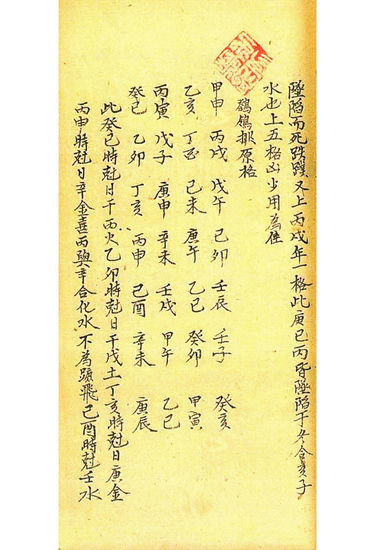 墜陷而死跌蹼又上丙戌年一格此庚己丙皆墜陷于冬令亥子
水也上五格凶少用為佳
鵓鴿排原格
甲申 丙戌 戊午 己卯 壬辰 壬子 癸亥
乙亥 丁丑 己未 庚午 乙巳 癸卯 甲寅
丙寅 戊子 庚申 辛未 壬戌 甲午 乙巳
癸巳 乙卯 丁亥 丙申 己酉 辛未 庚辰
此癸巳時尅日干丙火乙卯時尅日干戊土丁亥時尅日庚金
丙申時尅日辛金喜丙與辛合化水不為跡飛己酉時尅壬水